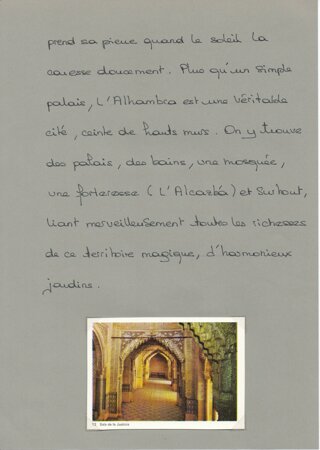 prend sa pierre quand le soleil la
caresse doucement. Plus qu'un simple
palais, L'Alhambra est une véritable
cité, ceinte de hauts murs. On y trouve
des palais, des bains, une mosquée,
une forteresse (L'Alcazbá) et surtout,
liant merveilleusement toutes les richesses
de ce territoire magique, d'harmonieux
jardins.
12 Sala de la Justicia